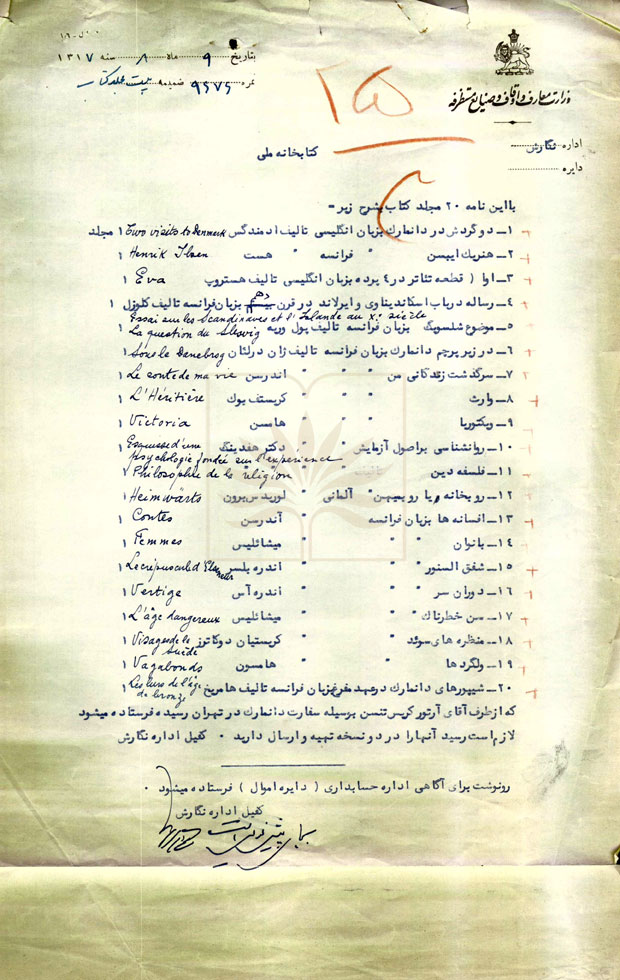 بتاریخ ۹ ماه ۸ سنه ۱۳۱۷
نمره ۹۶۷۶ ضمیمه بیست جلد کتاب
وزارت معارف و اوقاف و صنایع مستظرفه
اداره نگارش
دایره
کتابخانه ملی
بااین نامه ۲۰ مجلد کتاب بشرح زیر -
۱- دو گردش در دانمارک بزبان انگلیسی تالیف ادمندگس Two visits to Denmark ۱ مجلد
۲- هنریك ایبسن " فرانسه " هست Henrik Ibsen ۱
۳- اوا ( قطعه تئاتر در ٤ پرده بزبان انگلیسی تالیف هستروپ Eva ۱
٤- رساله درباب اسکاندیناوی و ایرلاند در قرن دهم بزبان فرانسه تالیف کلوزل ۱
Essai sur les Scandinaves et l'Islande au Xe siècle
۵- موضوع شلسویگ بزبان فرانسه تالیف پول وریه La question du Slesvig ۱
۶- در زیر پرچم دانمارک بزبان فرانسه تالیف ژان درلتان Sous le Danebrog ۱
۷- سرگذشت زندگانی من " " اندرسن Le conte de ma vie ۱
۸- وارث " " کریستف بوك L'Héritière ۱
۹- ویکتوریا " " هامسن Victoria ۱
۱۰- روانشناسی براصول آزمایش " " دکتر هفدینگ Esquisse d'une psychologie fondée sur l'expérience ۱
۱۱- فلسفه دین " " Philosophie de la religion ۱
۱۲- روبخانه و یا رو بمیهن " آلمانی " لوریدس برون Heimwärts ۱
۱۳- افسانه ها بزبان فرانسه " آندرسن Contes ۱
۱٤- بانوان " " میشائلیس Femmes ۱
۱۵- شفق السنور " " اندره بلسر Le crépuscule d'Elseneur ۱
۱۶- دوران سر " " اندره آس Vertige ۱
۱۷- سن خطرناك " " میشائلیس L'âge dangereux ۱
۱۸- منظره های سوئد " " کریستیان دوکاترز Visages de la Suède ۱
۱۹- ولگردها " " هامسون Vagabonds ۱
۲۰- شیپورهای دانمارک در عهد مفرغ بزبان فرانسه تالیف هامریخ Les lurs de l'âge de bronze ۱
که از طرف آقای آرتور کریس تنسن بوسیله سفارت دانمارک در تهران رسیده فرستاده میشود
لازم است رسید آنها را در دو نسخه تهیه و ارسال دارید . کفیل اداره نگارش
رونوشت برای آگاهی اداره حسابداری ( دایره اموال ) فرستاده میشود .
کفیل اداره نگارش